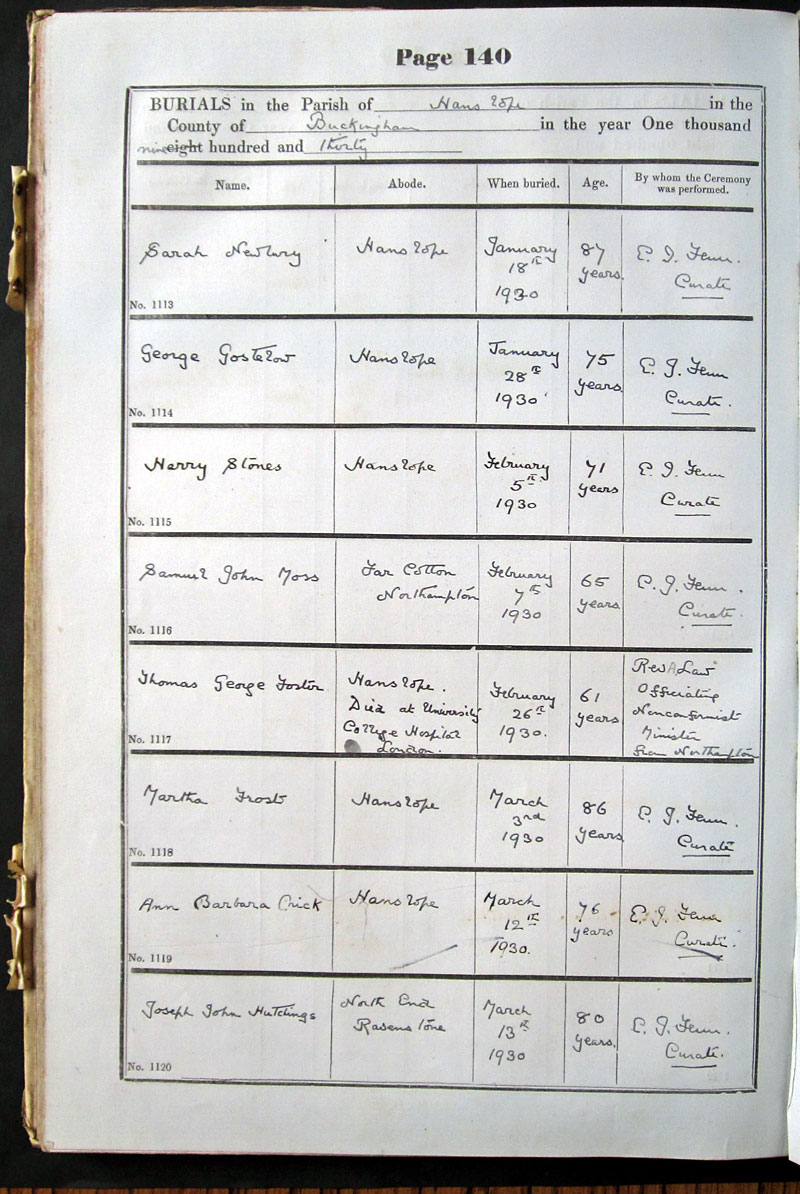 Page 140
BURIALS in the Parish of Hanslope in the
County of Buckingham in the year One thousand
nine eight hundred and thirty
Name. Abode. When buried. Age. By whom the Ceremony was performed.
Sarah Newbury Hanslope January 18th 1930 87 years. E. J. Fenn. Curate
No. 1113
George Gostelow Hanslope January 28th 1930 75 years. E. J. Fenn Curate.
No. 1114
Harry Stones Hanslope February 5th 1930 71 years E. J. Fenn Curate
No. 1115
Samuel John Moss Far Cotton Northampton February 7th 1930 65 years E. J. Fenn. Curate.
No. 1116
Thomas George Foster Hanslope. Died at University College Hospital London. February 26th 1930. 61 years Rev A Law Officiating Nonconformist Minister from Northampton
No. 1117
Martha Frost Hanslope March 3rd 1930 86 years E. J. Fenn. Curate
No. 1118
Ann Barbara Crick Hanslope March 12th 1930. 76 years E. J. Fenn Curate.
No. 1119
Joseph John Hutchings North End Ravenstone March 13th 1930 80 years. E. J. Fenn. Curate.
No. 1120